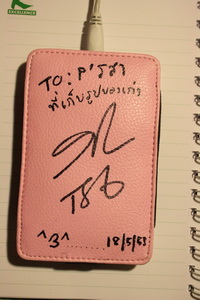 EXCELLENCE
TO : P'รสา
ที่เก็บรูปของเก่ง
T86
^3^ ........ 18/5/53